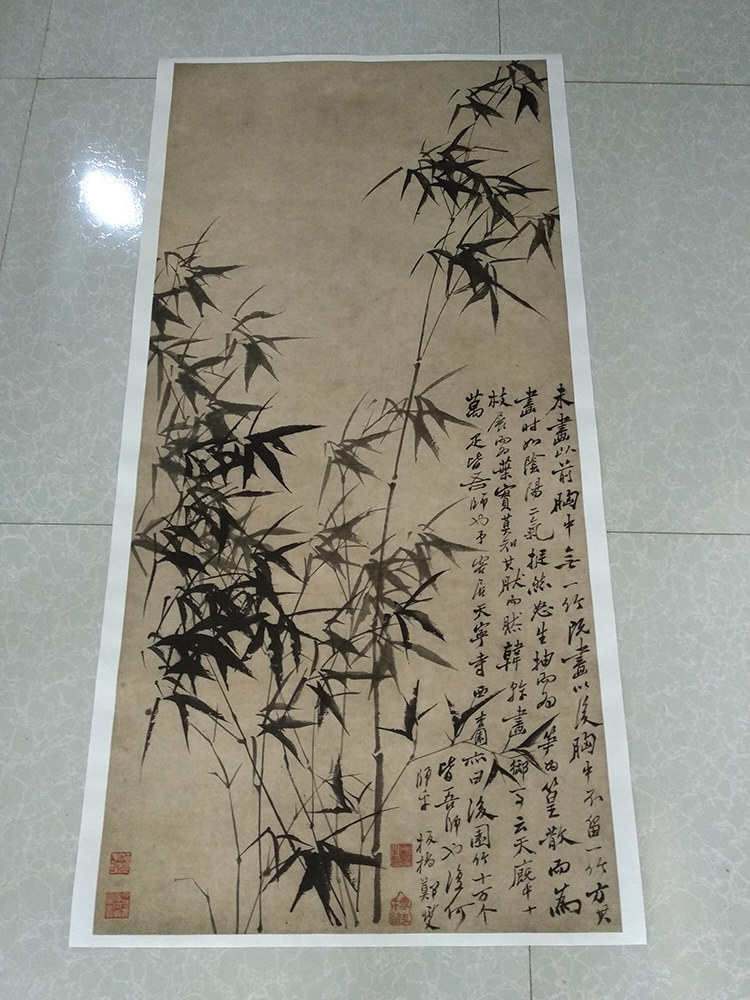 未畫以前胸中無一竹既畫以後胸中不留一竹方其
畫時如陰陽二氣挺然怒生抽而為筍為篁散而為
枝展而為葉實莫知其然而然韓幹畫御馬云天廐中十
萬疋皆吾師也予客居天寧寺西杏園亦曰後園竹十万个
皆吾師也復何
師乎板橋鄭燮